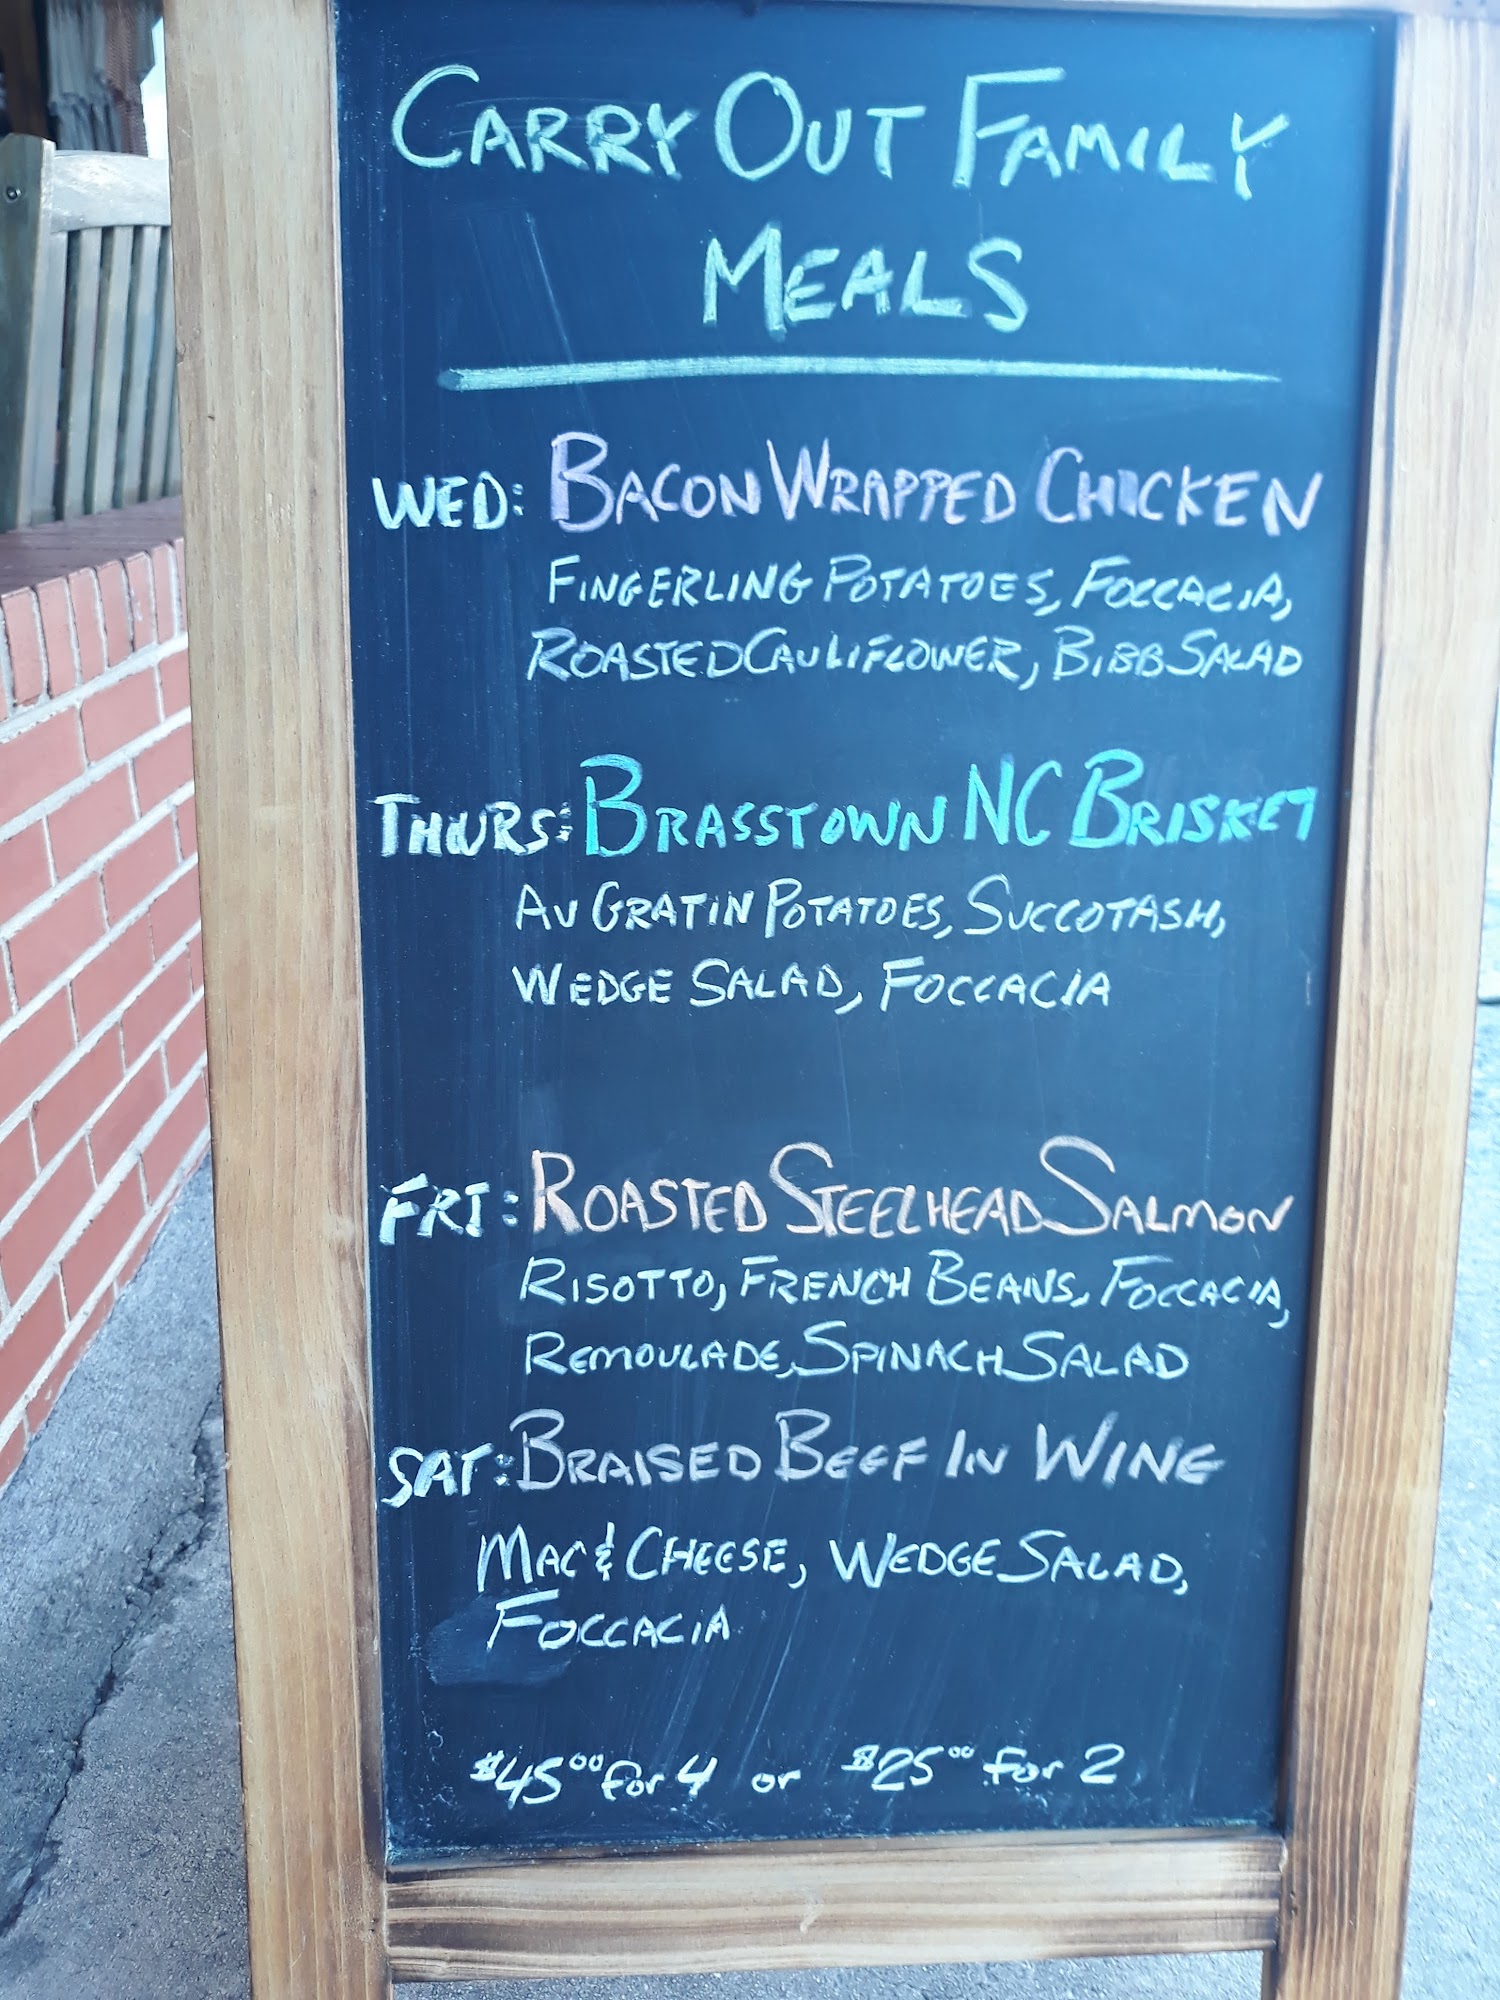 CARRY OUT FAMILY
MEALS
WED: BACON WRAPPED CHICKEN
FINGERLING POTATOES, FOCCACIA,
ROASTED CAULIFLOWER, BIBB SALAD
THURS: BRASSTOWN NC BRISKET
AU GRATIN POTATOES, SUCCOTASH,
WEDGE SALAD, FOCCACIA
FRI: ROASTED STEELHEAD SALMON
RISOTTO, FRENCH BEANS, FOCCACIA,
REMOULADE, SPINACH SALAD
SAT: BRAISED BEEF IN WINE
MAC & CHEESE, WEDGE SALAD,
FOCCACIA
$45.00 for 4 or $25.00 for 2